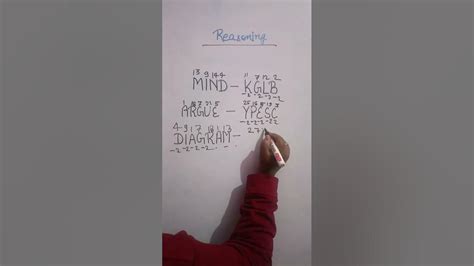 Reasoning
13 9 14 4 11 7 12 2
MIND – KGLB
-2 -2 -2 -2
1 18 7 21 5 25 16 5 19 3
ARGUE – YPESC
-2 -2 -2 -2 -2
4 9 1 7 18 1 13 2 7
DIAGRAM –
-2 -2 -2 -2